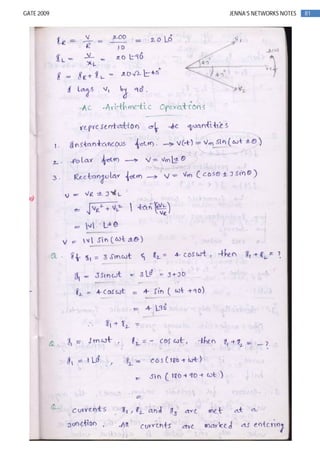 GATE 2009 JENNA'S NETWORKS NOTES 81
IR = V/R = 200/10 = 20 L0
IL = V/XL = 20 L-90
I = IR + IL = 20√2 L-45°
I lags V, by 90.
-AC -Arithmetic Operations
representation of -AC quantities
1. Instantaneous form. → V(t) = Vm Sin(ωt ± θ)
2. polar form → V = Vm L±θ
3. Rectangular form → V = Vm (cosθ ± J sinθ)
V = VR ± JVL
= √VR² + VL² | tan (VL/VR)
= |V| L±θ
V = |V| Sin (ωt ± θ)
Q. If I1 = 3 sinωt & I2 = 4 cosωt, then I1 + I2 = ?
I1 = 3 sinωt = 3 L0 = 3+J0
I2 = 4 cosωt = 4 Sin (ωt + 90)
= 4 L90
∴ I1 + I2 =
Q. I1 = Sinωt, I2 = - cos ωt, then I1 + I2 = - ?
I1 = 1 L0, I2 = cos (180 + ωt)
= Sin (180 + 90 + ωt)
=
Q. currents I1, I2 and I3 are met at a
Junction, All currents are marked as entering